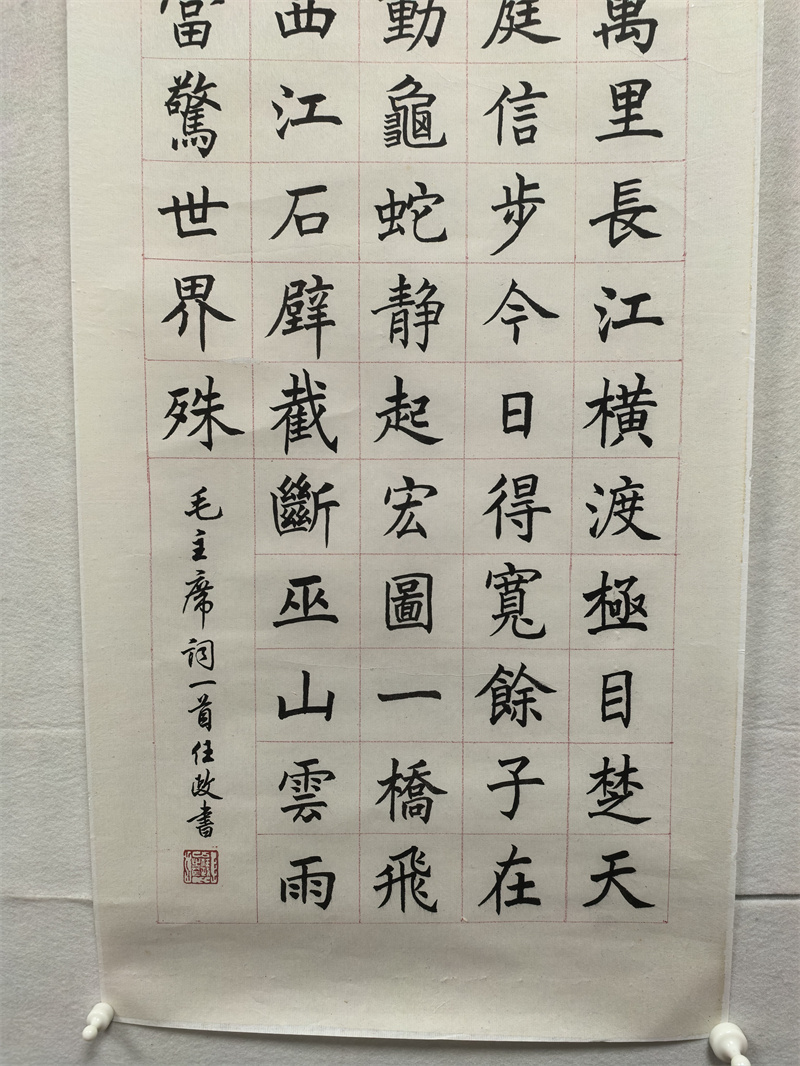 萬里長江横渡極目楚天
庭信步今日得寬餘子在
動龜蛇静起宏圖一橋飛
西江石壁截斷巫山雲雨
當驚世界殊
毛主席詞一首任政書